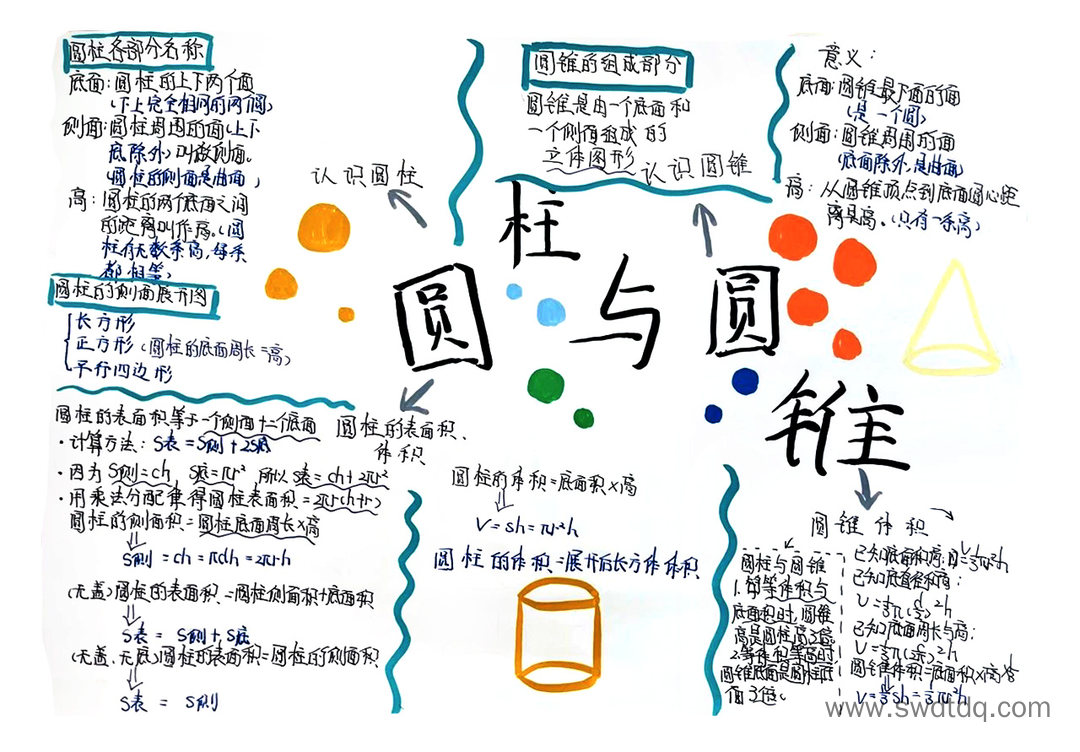 圆柱各部分名称
底面:圆柱的上下两个面
(下上完全相同的两个圆)
侧面:圆柱周围的面(上下
底除外)叫做侧面。
(圆柱的侧面是曲面)
高:圆柱的两个底面之间
的距离叫作高。(圆
柱有无数条高,每条
都相等)
圆柱的侧面展开图
长方形
正方形(圆柱的底面周长=高)
平行四边形
认识圆柱
圆锥的组成部分
圆锥是由一个底面和
一个侧面组成的
立体图形
认识圆锥
意义:
底面:圆锥最下面的面
(是一个圆)
侧面:圆锥周围的面
(底面除外,是曲面)
高:从圆锥顶点到底面圆心距
离是高。(只有一条高)
圆柱与圆锥
圆柱的表面积、
体积
圆柱的表面积等于一个侧面+二个底面
·计算方法:S表=S侧+2S底
·因为S侧=ch,S底=πr²,所以S表=ch+2πr²
·用乘法分配律得圆柱表面积=2πr(h+r)
圆柱的侧面积=圆柱底面周长×高
S侧=ch=πdh=2πrh
(无盖)圆柱的表面积=圆柱侧面积+底面积
S表=S侧+S底
(无盖、无底)圆柱的表面积=圆柱的侧面积
S表=S侧
圆柱的体积=底面积×高
V=sh=πr²h
圆柱的体积=展开后长方体体积
圆锥体积
圆柱与圆锥
底面积时,圆锥
高是圆柱高3倍
2.等体积等高时
圆锥底面是圆柱底
面3倍。
已知底面积和高:
已知底直径和高:
已知底面周长与高:
圆锥体积=底面积×高×⅓
V=⅓Sh=⅓πr²h
www.swdtdq.com